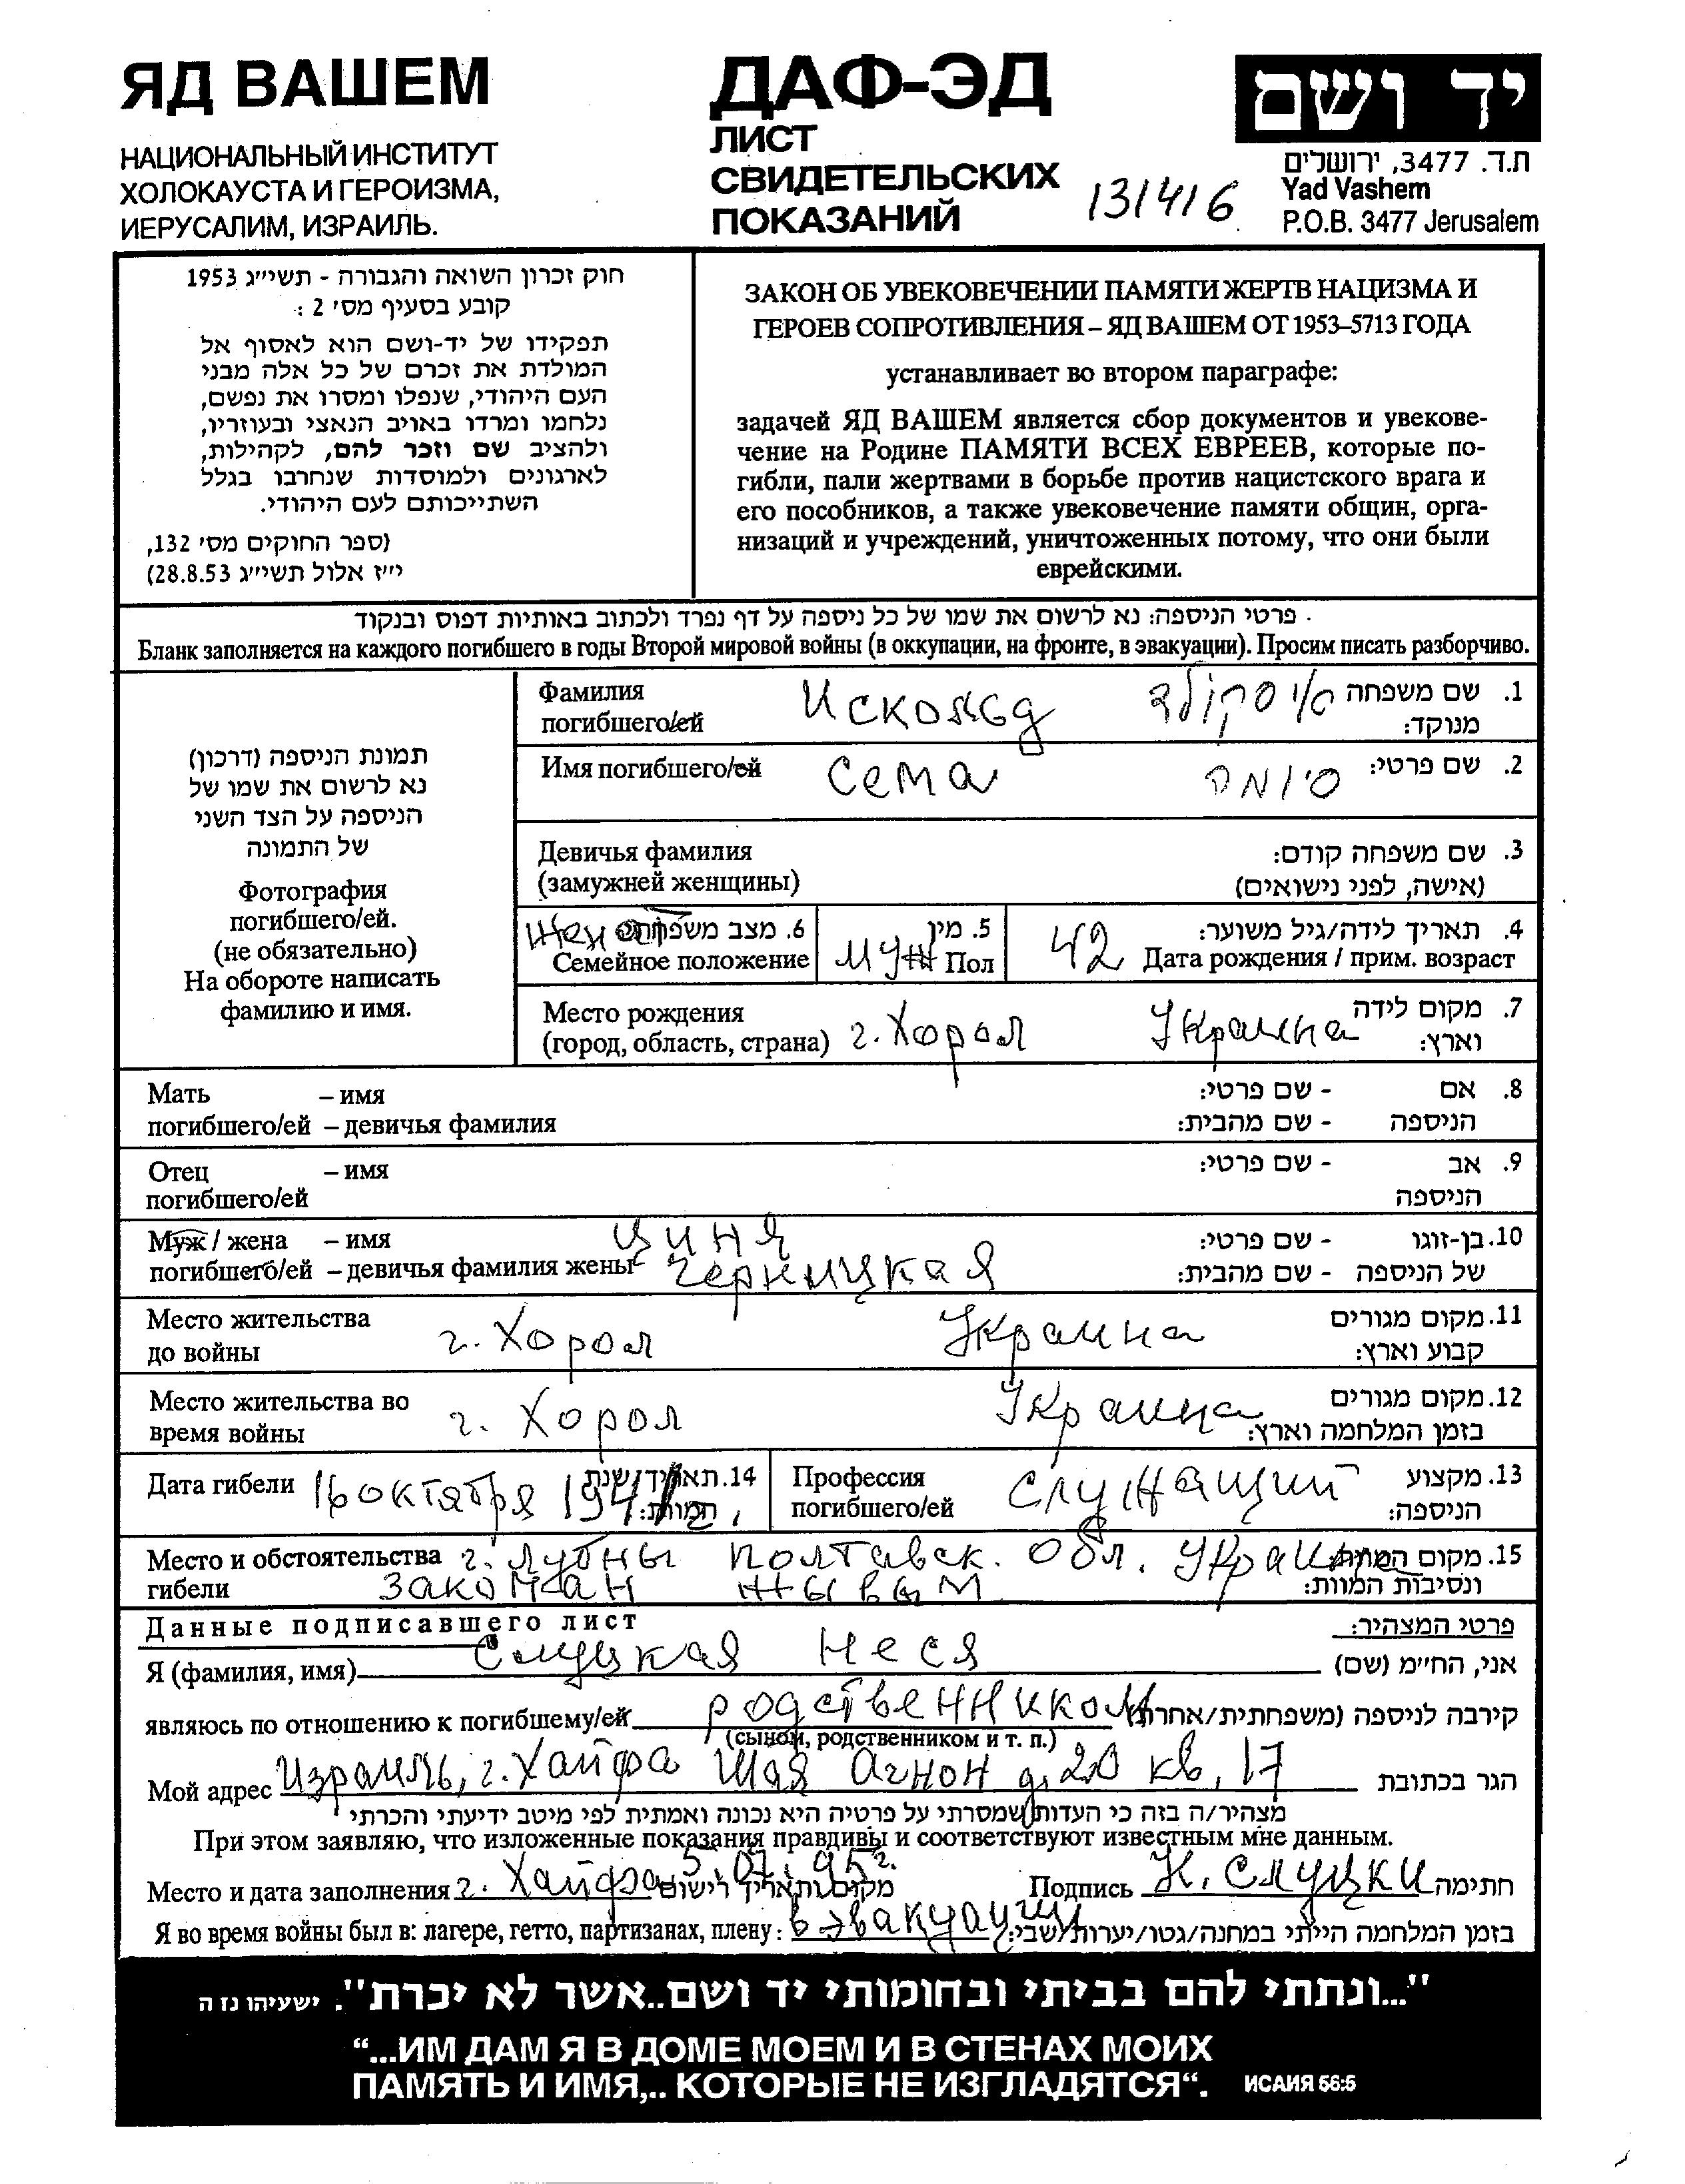 ЯД ВАШЕМ
НАЦИОНАЛЬНЫЙ ИНСТИТУТ
ХОЛОКАУСТА И ГЕРОИЗМА,
ИЕРУСАЛИМ, ИЗРАИЛЬ.
ДАФ-ЭД
ЛИСТ
СВИДЕТЕЛЬСКИХ
ПОКАЗАНИЙ
131416
יד ושם
ת.ד. 3477, ירושלים
Yad Vashem
P.O.B. 3477 Jerusalem
חוק זכרון השואה והגבורה - תשי״ג 1953
קובע בסעיף מס׳ 2 :
תפקידו של יד-ושם הוא לאסוף אל
המולדת את זכרם של כל אלה מבני
העם היהודי, שנפלו ומסרו את נפשם,
נלחמו ומרדו באויב הנאצי ובעוזריו,
ולהציב שם וזכר להם, לקהילות,
לארגונים ולמוסדות שנחרבו בגלל
השתייכותם לעם היהודי.
(ספר החוקים מס׳ 132,
י״ז אלול תשי״ג 28.8.53)
ЗАКОН ОБ УВЕКОВЕЧЕНИИ ПАМЯТИ ЖЕРТВ НАЦИЗМА И
ГЕРОЕВ СОПРОТИВЛЕНИЯ – ЯД ВАШЕМ ОТ 1953–5713 ГОДА
устанавливает во втором параграфе:
задачей ЯД ВАШЕМ является сбор документов и увекове-
чение на Родине ПАМЯТИ ВСЕХ ЕВРЕЕВ, которые по-
гибли, пали жертвами в борьбе против нацистского врага и
его пособников, а также увековечение памяти общин, орга-
низаций и учреждений, уничтоженных потому, что они были
еврейскими.
פרטי הניספה: נא לרשום את שמו של כל ניספה על דף נפרד ולכתוב באותיות דפוס ובנקוד .
Бланк заполняется на каждого погибшего в годы Второй мировой войны (в оккупации, на фронте, в эвакуации). Просим писать разборчиво.
תמונת הניספה (דרכון)
נא לרשום את שמו של
הניספה על הצד השני
של התמונה
Фотография
погибшего/ей.
(не обязательно)
На обороте написать
фамилию и имя.
Фамилия
погибшего/ей Искольд
1. שם משפחה
מנוקד:
Имя погибшего/ей Сема סיומה 2. שם פרטי:
Девичья фамилия
(замужней женщины)
3. שם משפחה קודם:
(אישה, לפני נישואים)
6. מצב משפחתי
Женат Семейное положение
5. מין
муж Пол
4. תאריך לידה/גיל משוער:
42 Дата рождения / прим. возраст
Место рождения
(город, область, страна) г. Хорол Украина
7. מקום לידה
וארץ:
Мать – имя 8. אם - שם פרטי:
погибшего/ей – девичья фамилия הניספה - שם מהבית:
Отец – имя 9. אב - שם פרטי:
погибшего/ей הניספה
Муж / жена – имя Циня 10. בן-זוגו - שם פרטי:
погибшего/ей – девичья фамилия жены Черницкая של הניספה - שם מהבית:
Место жительства
до войны г. Хорол Украина
11. מקום מגורים
קבוע וארץ:
Место жительства во
время войны г. Хорол Украина
12. מקום מגורים
בזמן המלחמה וארץ:
Дата гибели 16 октября 1941 г.
14. תאריך/שנת
המוות:
Профессия
погибшего/ей служащий
13. מקצוע
הניספה:
Место и обстоятельства г. Лубны Полтавск. обл. Украина 15. מקום המוות
гибели закопан жывым ונסיבות המוות:
Данные подписавшего лист פרטי המצהיר:
Я (фамилия, имя) Слуцкая Неся אני, הח״מ (שם)
являюсь по отношению к погибшему/ей родственником קירבה לניספה (משפחתית/אחרת)
(сыном, родственником и т. п.)
Мой адрес Израиль, г. Хайфа Шая Агнон д. 20 кв. 17 הגר בכתובת
מצהיר/ה בזה כי העדות שמסרתי על פרטיה היא נכונה ואמתית לפי מיטב ידיעתי והכרתי
При этом заявляю, что изложенные показания правдивы и соответствуют известным мне данным.
Место и дата заполнения г. Хайфа 5.07.95 г. מקום ותאריך רישום Подпись Н. Слуцки חתימה
Я во время войны был в: лагере, гетто, партизанах, плену: в эвакуации בזמן המלחמה הייתי במחנה/גטו/יערות/שבי:
״...ונתתי להם בביתי ובחומותי יד ושם..אשר לא יכרת״. ישעיהו נז ה
“...ИМ ДАМ Я В ДОМЕ МОЕМ И В СТЕНАХ МОИХ
ПАМЯТЬ И ИМЯ,.. КОТОРЫЕ НЕ ИЗГЛАДЯТСЯ“. ИСАИЯ 56:5